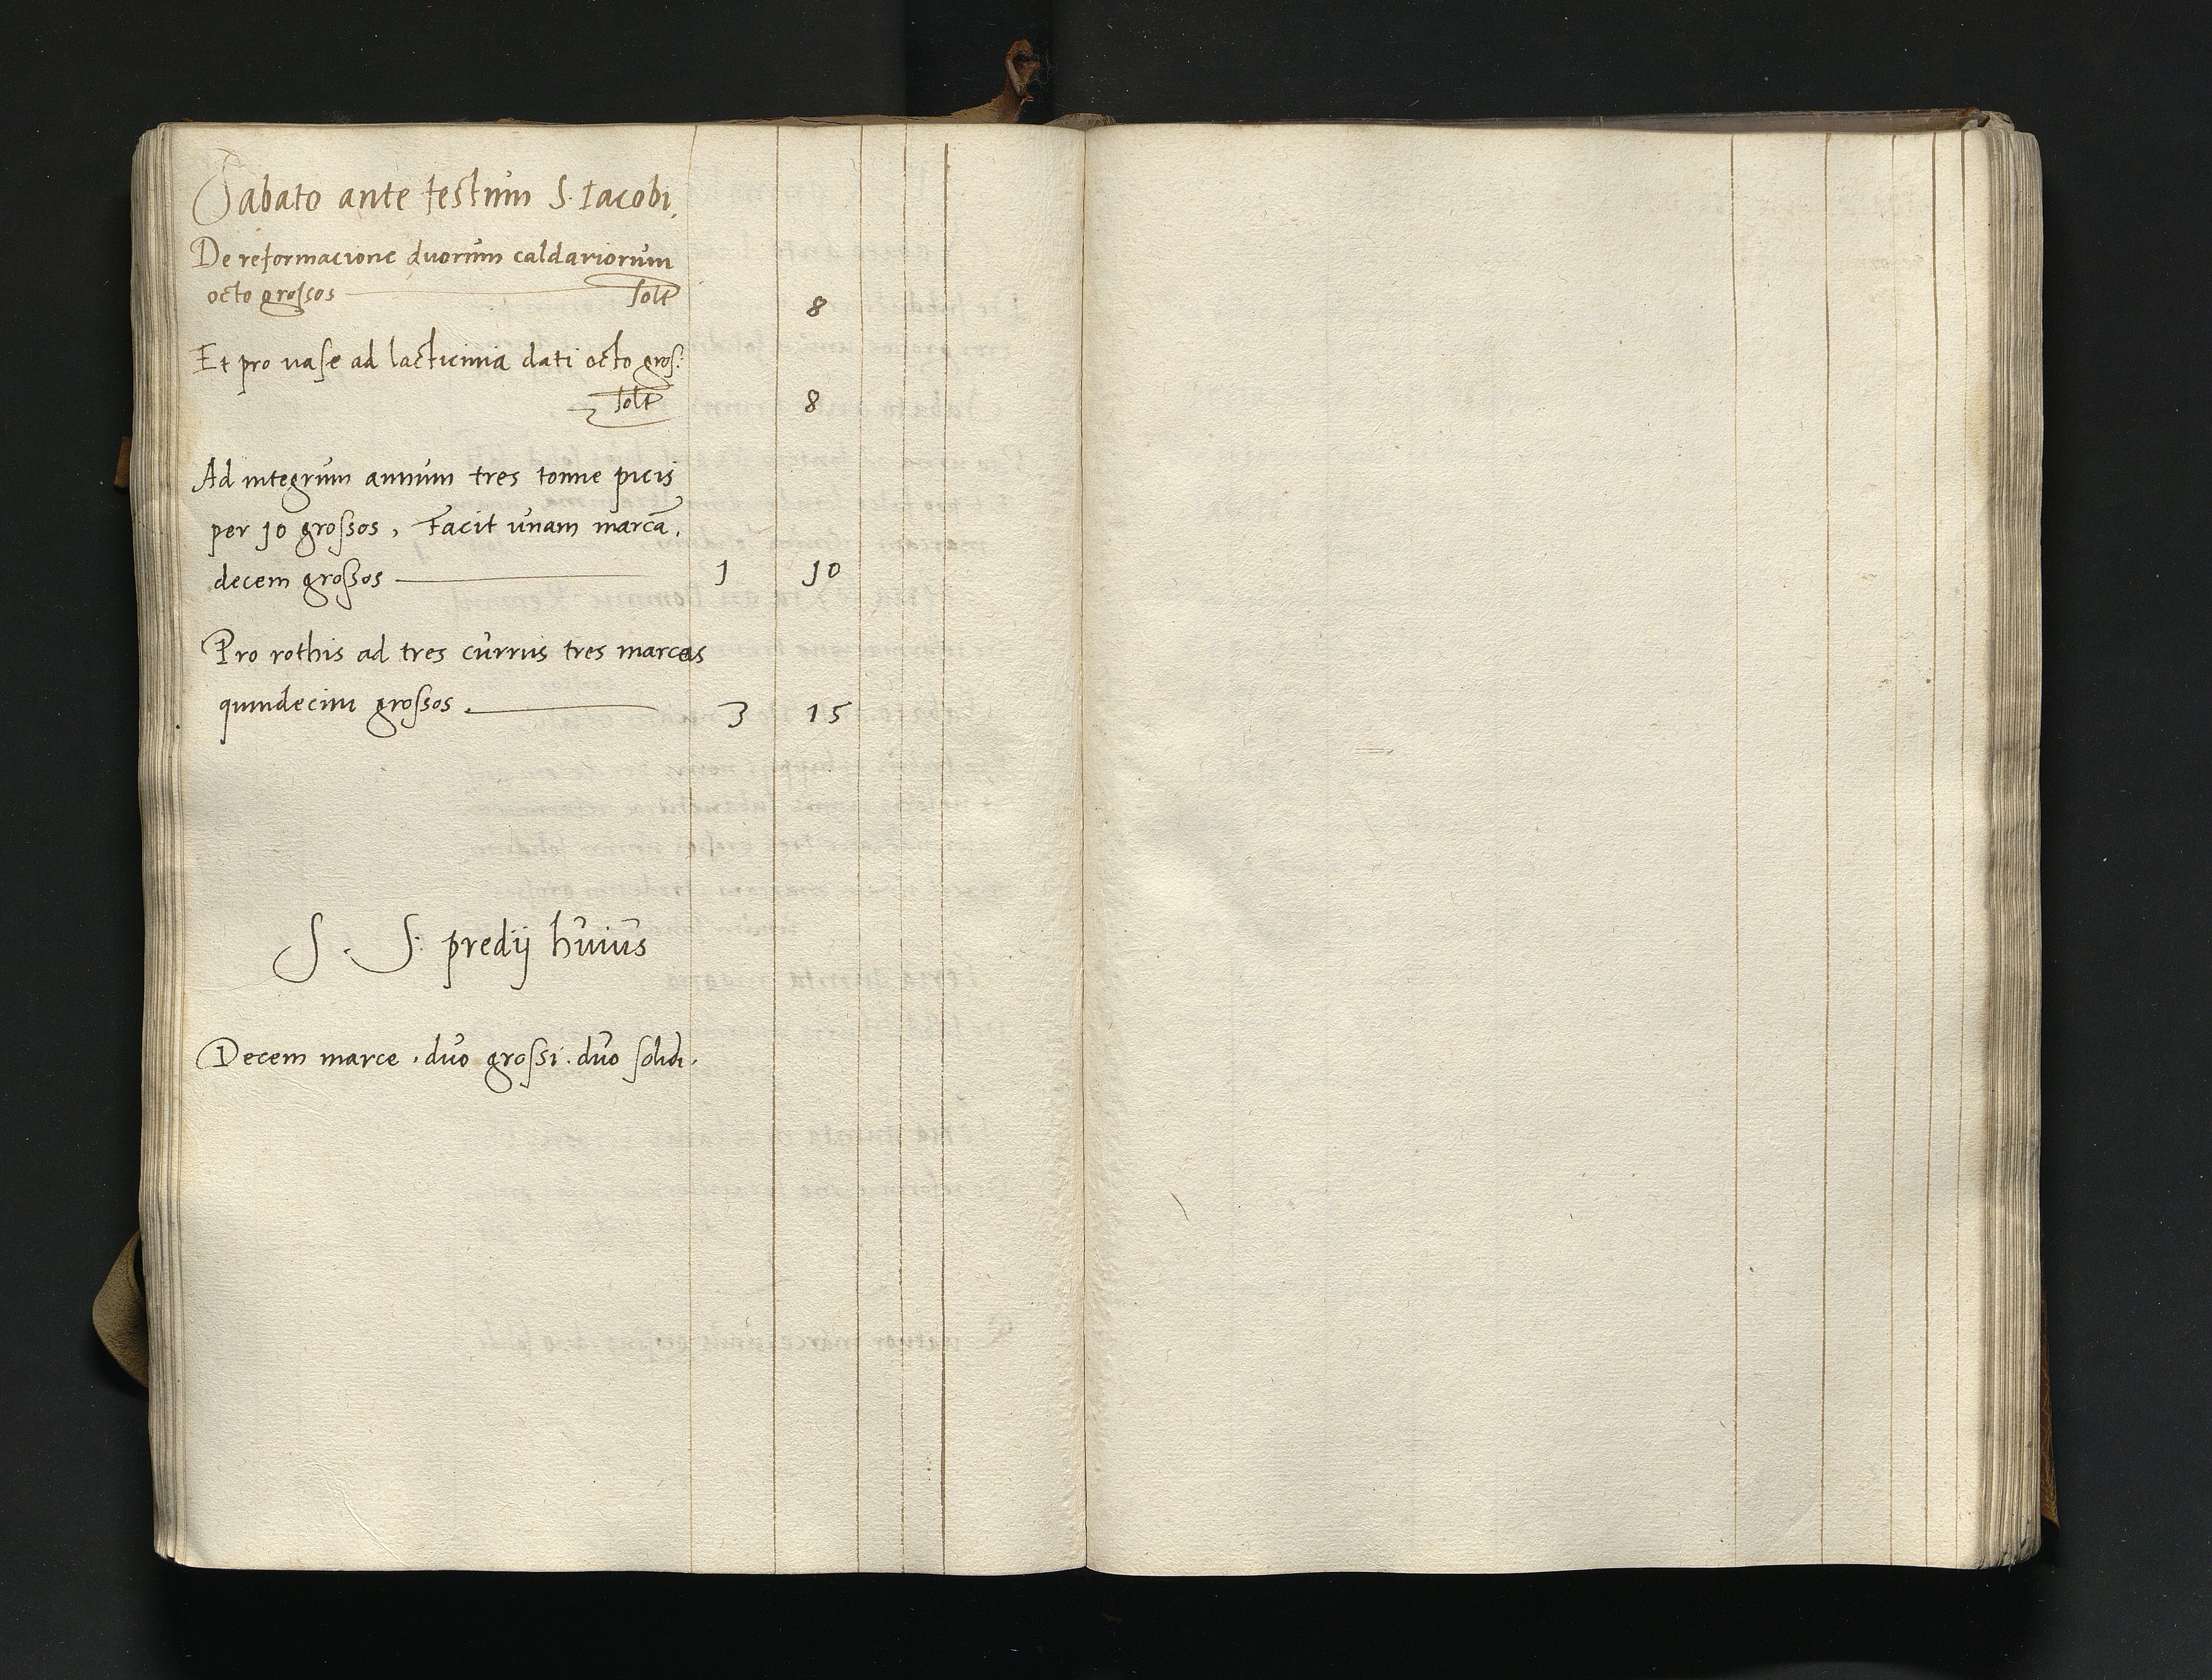 Sabato ante festum S. Iacobi.
De reformacione duorum caldariorum
octo grossos solt 8
Et pro uase ad lacticinia dati octo gros:
solt 8
Ad integrum annum tres tonne picis
per 10 grossos, Facit vnam marcā.
decem grossos 1 10
Pro rothis ad tres currus tres marcas
quindecim grossos. 3 15
S. S: predij huius
Decem marce . duo grossi . duo solidi.